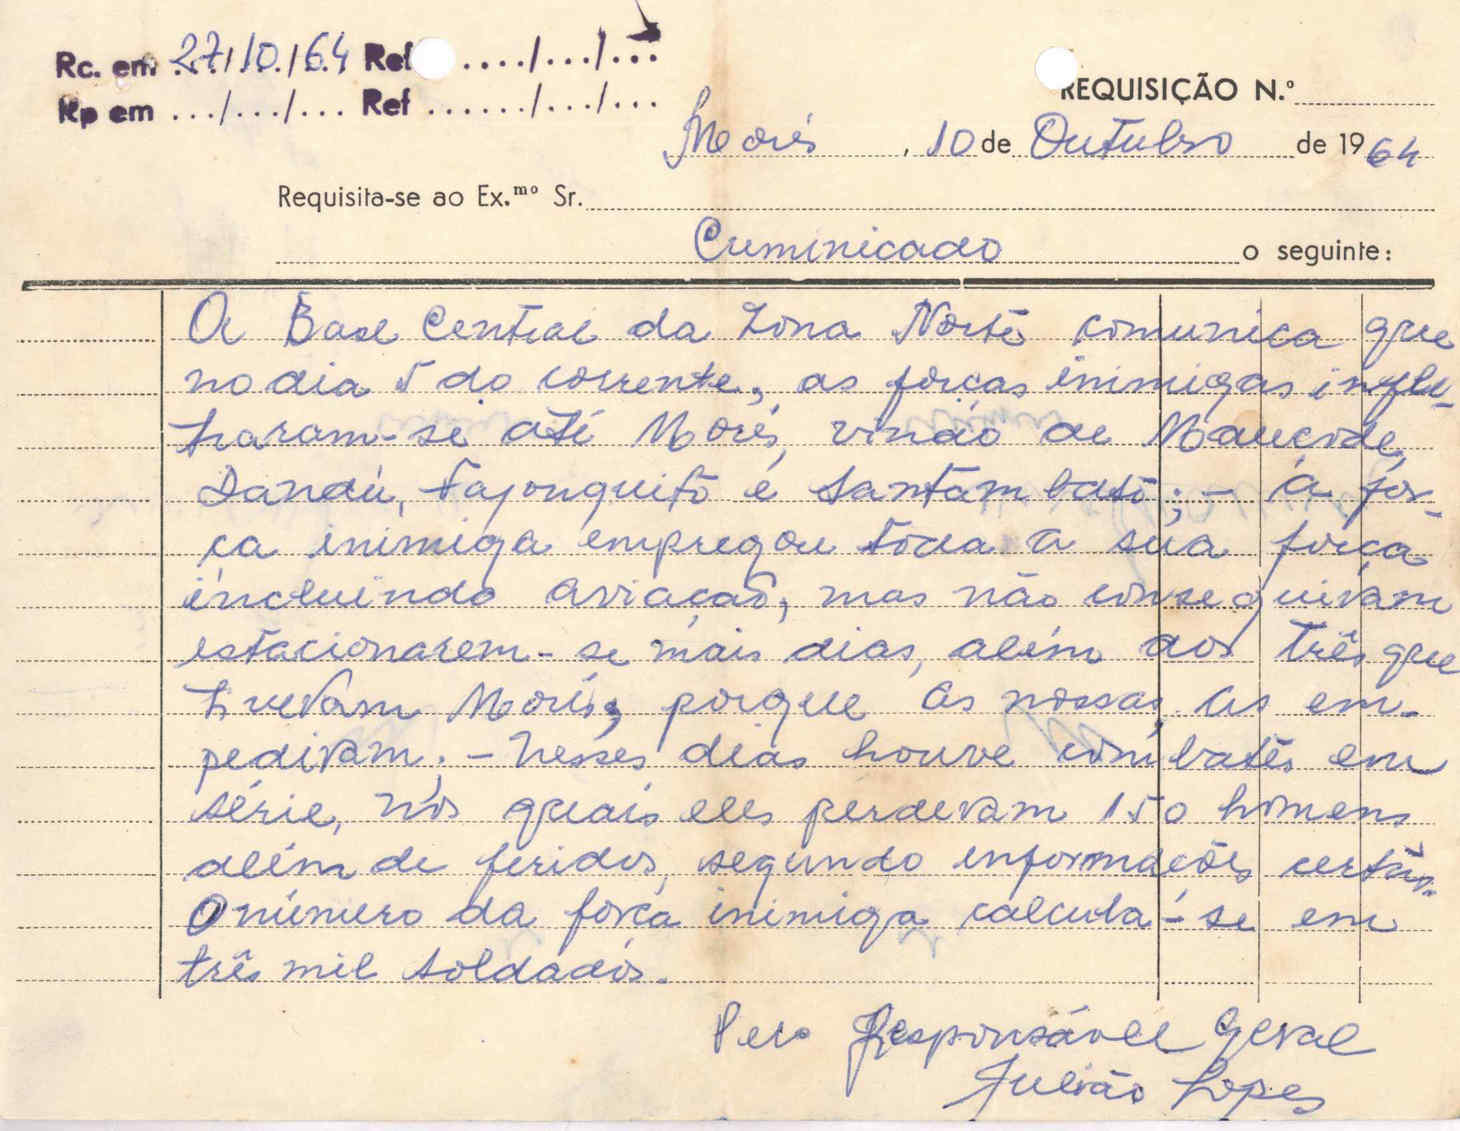 Rc. em 27/10/64 Ref ..../.../...
Rp em .../.../... Ref ....../.../...
REQUISIÇÃO N.º
Morés, 10 de Outubro de 1964
Requisita-se ao Ex.mo Sr.
Cuminicado o seguinte:
A Base Central da Zona Norte comunica que
no dia 5 do corrente, as forças inimigas infil-
traram-se até Morés, vindo de
Dandú, Fajonquitõ e Santâmbatõ; - A for-
ça inimiga empregou toda a sua força
incluindo aviação, mas não conseguiram
estacionarem-se mais dias, além dos três que
tiveram Morés, porque as nossas as em-
pediram. - Nesses dias houve combatês em
série, nos quais eles perderam 150 homens
além de feridos, segundo informações certas.
O número da força inimiga calcula-se em
três mil soldados.
Pelo Responsável Geral
Julião Lopes